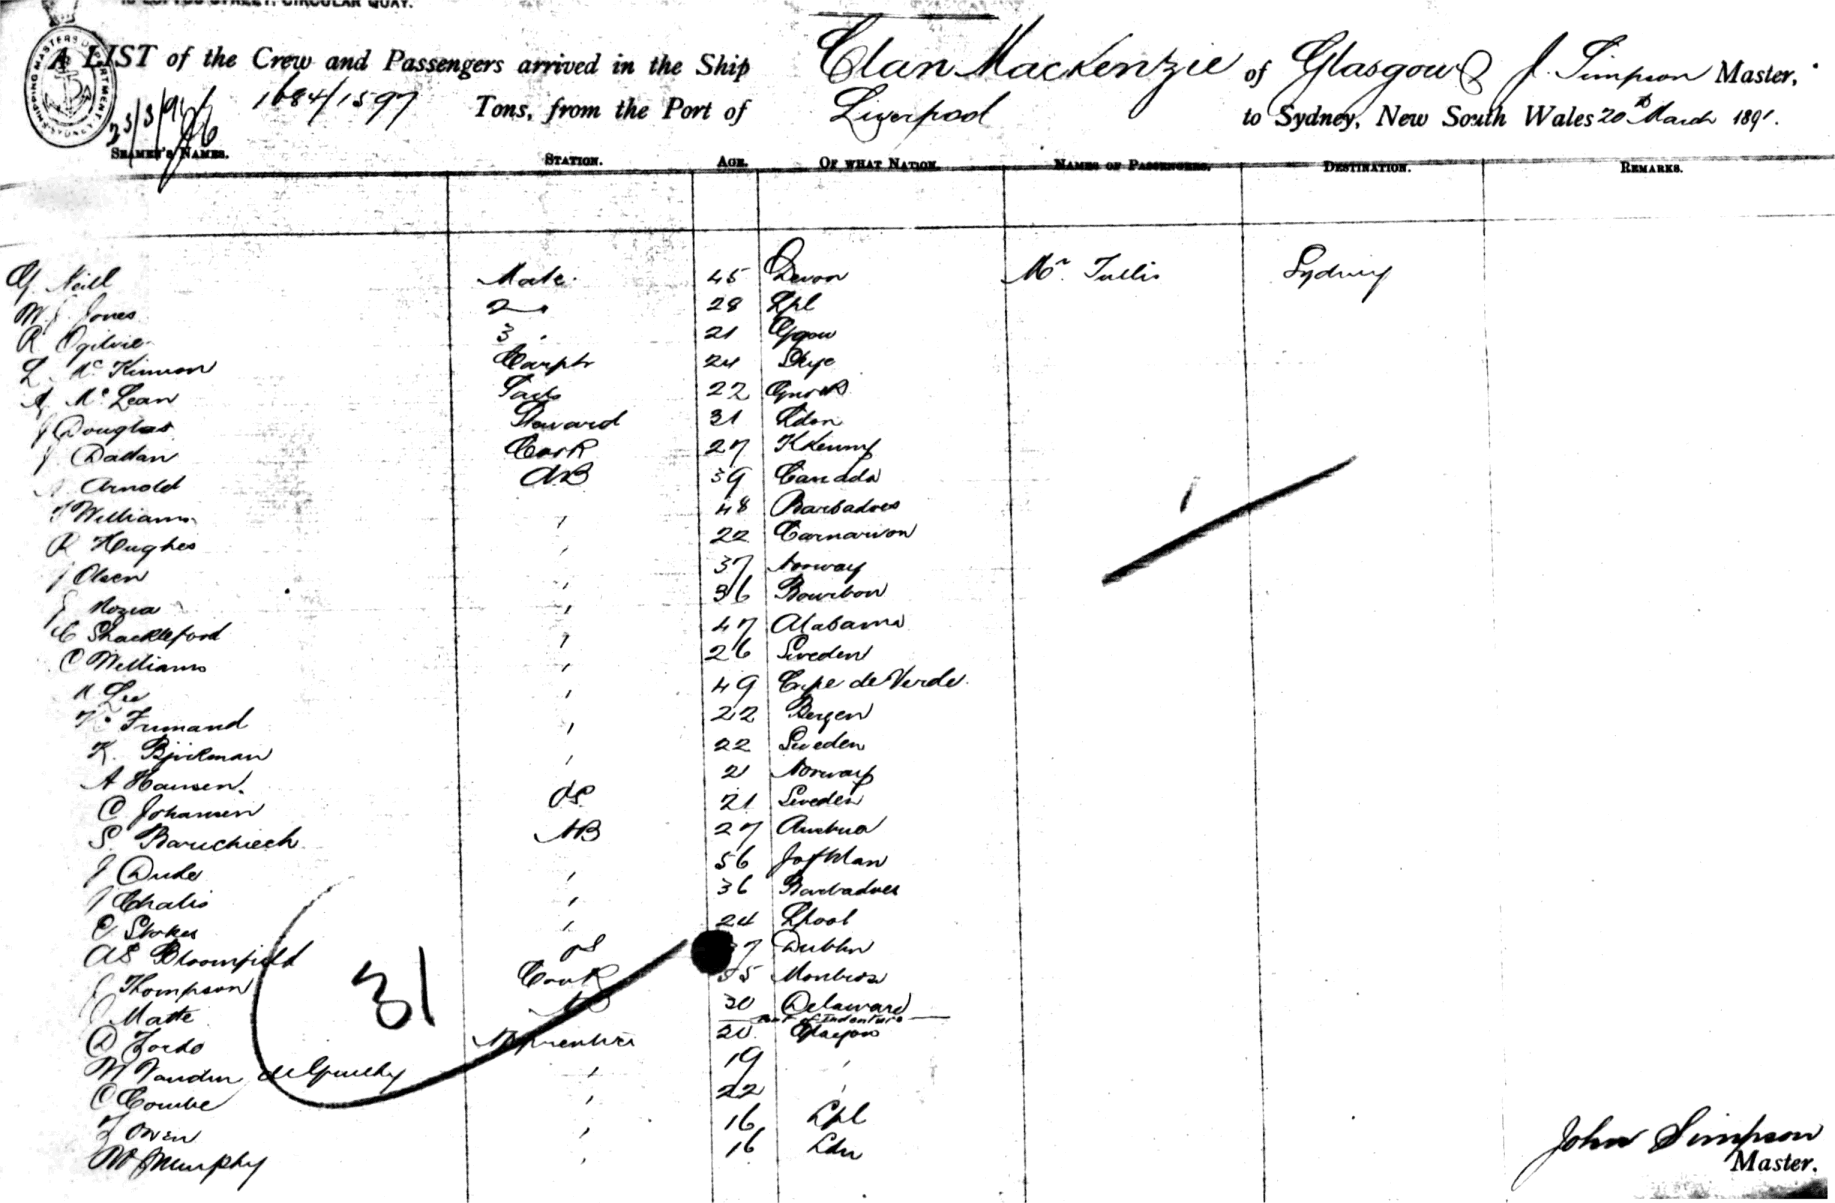 10 LOFTUS STREET, CIRCULAR QUAY.
A LIST of the Crew and Passengers arrived in the Ship Clan Mackenzie of Glasgow J. Simpson Master,
23/3/91 1684/1597 Tons, from the Port of Liverpool to Sydney, New South Wales 20th March 1891.
SEAMEN'S NAMES. STATION. AGE. OF WHAT NATION. NAMES OF PASSENGERS. DESTINATION. REMARKS.
Neill Mate. 45 Devon Mr. Tullis Sydney
W J Jones 2 " 28 Lpl
R Ogilvie 3 " 21 Ggow
L McKinnon Carptr 24 Skye
A McLean Sails 22 Gnock
J Douglas Steward 31 Ldon
J Dallan Cook 27 Kkenny
A Arnold AB 39 Canada
J Williams " 48 Barbadoes
R Hughes " 22 Carnarvon
J Olsen " 37 Norway
Rozea " 36 Bourbon
C Shackleford " 47 Alabama
C Williams " 26 Sweden
Lee " 49 Cape de Verde
Frimand " 22 Bergen
K. Bjorkman " 22 Sweden
A Hansen. " 21 Norway
C Johansen OS 21 Sweden
S. Baruchiech AB 27 Austria
J Dude " 56
J Chalis " 36 Barbadoes
E Stokes " 24 Lpool
AS Bloomfield OS 37 Dublin
J Thompson Cook 35 Montrose
J Matte AB 30 Delaware
Port of Indenture
D Forbo Apprentice 20 Glasgow
W Vaudin de Gruchy " 19 "
C Combe " 22 "
Owen " 16 Lpl
W Murphy " 16 Ldn
31
1
John Simpson
Master.